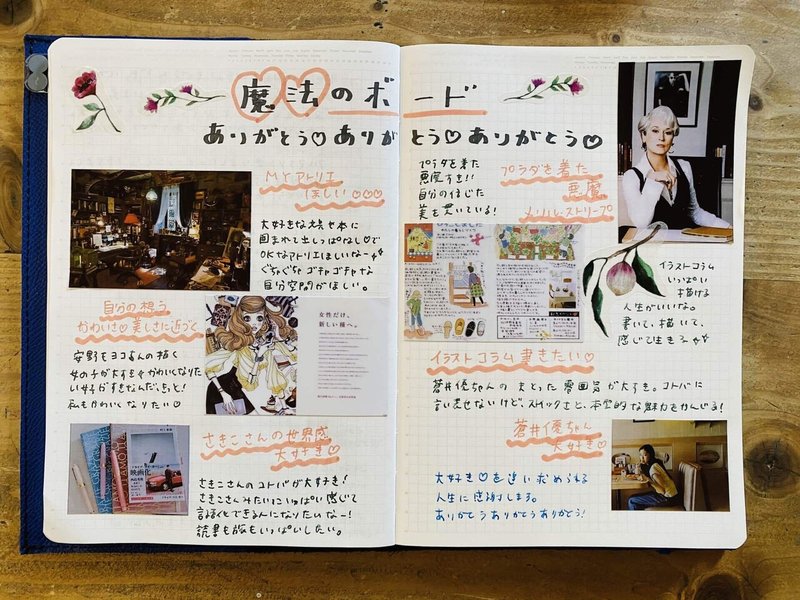 魔法のボード
ありがとう♡ありがとう♡ありがとう♡
MYアトリエ
ほしい♡♡♡
大好きな物や本に
囲まれて出しっぱなし♡で
OKなアトリエほしいなー
ぐちゃぐちゃゴチャゴチャな
自分空間がほしい。
自分の想う
かわいさ♡美しさに近づく
安野モヨコさんの描く
女の子が大すき
い女子がすきなんだ、ずっと!
私もかわいくなりたい♡
女性だけ、
新しい種へ。
さきこさんの世界感
大好き♡
映画化
さきこさんのコトバが大すき!
さきこさんみたいにいっぱい感じて
言語化できる人になりたいなー!
読書も旅もいっぱいしたい。
プラダを着た
悪魔すき!!
自分の信じた
美を貫いている!
プラダを着た
悪魔
メリル・ストリープ
イラストコラム
いっぱい
描ける
人生がいいな。
書いて、描いて、
感じて生きる
イラストコラム書きたい♡
蒼井優ちゃんのまとう雰囲気が大すき。コトバに
言い表せないけど、ストイックさと、本質的な魅力をかんじる!
蒼井優ちゃん
大好き♡
大好き♡を追い求められる
人生に感謝します。
ありがとうありがとうありがとう!